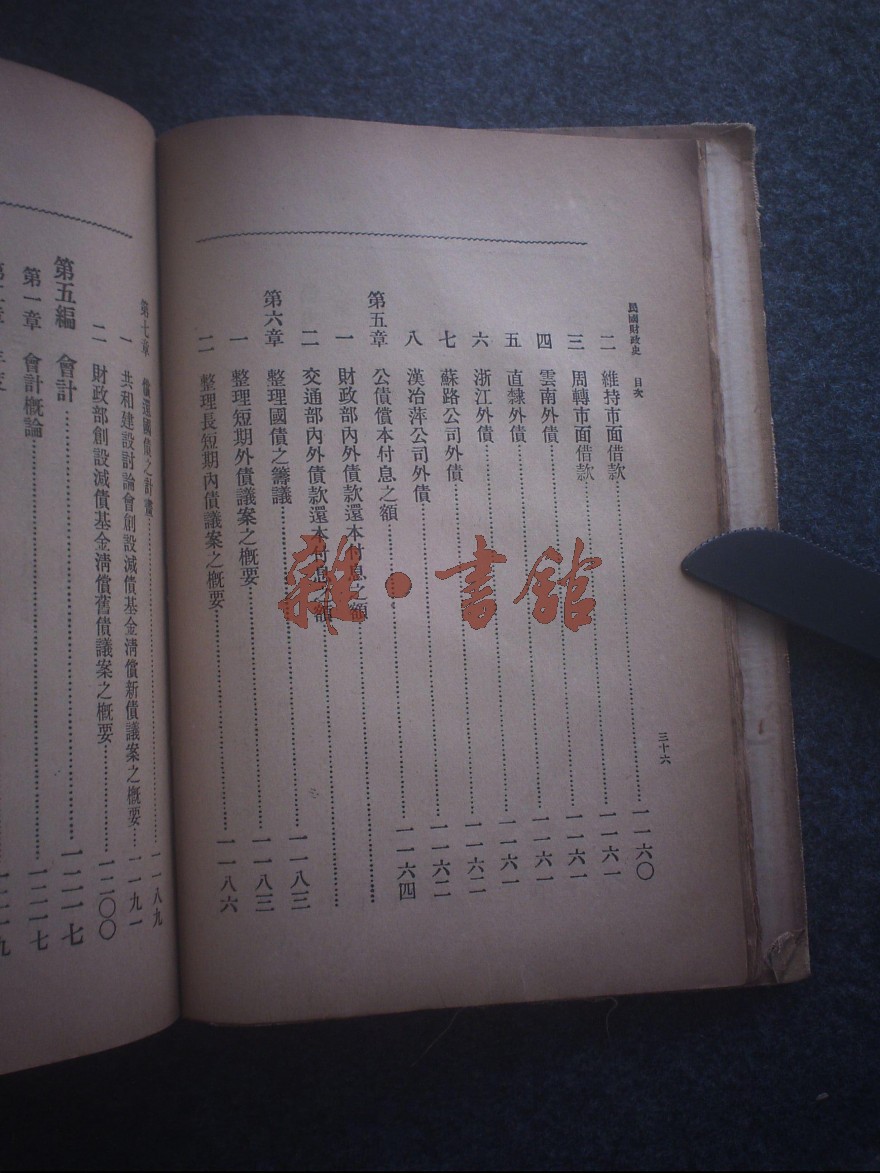 民國財政史 目次 三十六
二 維持市面借款……一一六〇
三 周轉市面借款……一一六一
四 雲南外債……一一六一
五 直隸外債……一一六一
六 浙江外債……一一六一
七 蘇路公司外債……一一六二
八 漢冶萍公司外債……一一六二
第五章 公債償本付息之額……一一六四
一 財政部內外債款還本付息之額……
二 交通部內外債款還本付息之額……
第六章 整理國債之籌議……一一八三
一 整理短期外債議案之概要……一一八三
二 整理長短期內債議案之概要……一一八六
第七章 償還國債之計畫……一一八九
一 共和建設討論會創設減債基金清償新債議案之概要……一一九一
二 財政部創設減債基金清償舊債議案之概要……一二〇〇
第五編 會計……一二一七
第一章 會計概論……一二一七
雜·書館